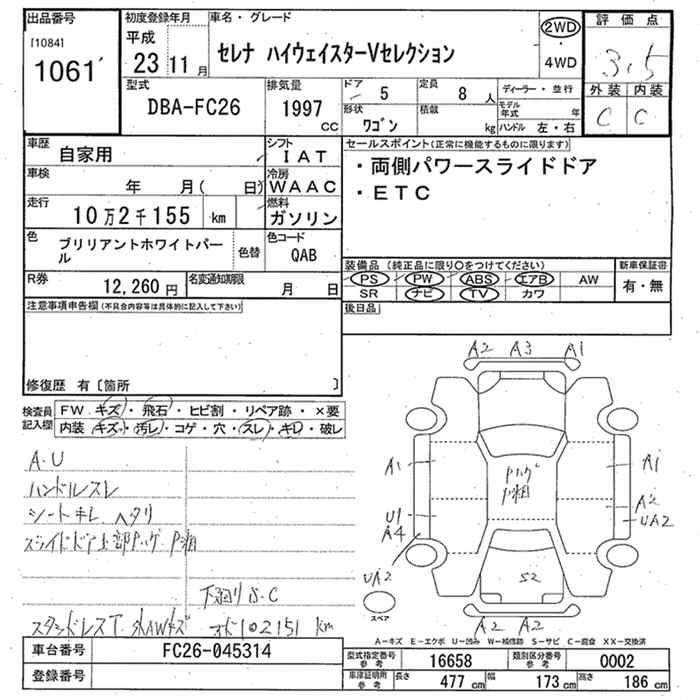 出品番号
[1084]
1061
初度登録年月
平成
23 11 月
車名・グレード
セレナ ハイウェイスターVセレクション
2WD
・
4WD
評価点
3.5
外装 内装
C C
型式
DBA-FC26
排気量
1997
CC
ドア
5
定員
8 人
ディーラー・並行
形状
ワゴン
積載
kg
モデル年式
年
ハンドル 左・右
車歴
自家用
シフト
IAT
車検
年 月( 日)
冷房
WAAC
走行
10万2千155 km
燃料
ガソリン
色
ブリリアントホワイトパール
色替
色コード
QAB
R券
12,260 円
名変通知期限
月 日
セールスポイント(正常に機能するものに限ります)
・両側パワースライドドア
・ETC
装備品(純正品に限り〇をつけてください)
PS PW ABS エアB AW
SR ナビ TV カワ
新車保証書
有・無
後日品
注意事項申告欄(不具合内容等は具体的に記入して下さい)
修復歴 有〔箇所 〕
検査員
記入欄
FW キズ・飛石・ヒビ割・リペア跡・×要
内装 キズ・汚レ・コゲ・穴・スレ・キレ・破レ
A.U
ハンドルスレ
シートキレ ヘタリ
スライドドア上部Pハゲ P粗
下廻りS.C
スタッドレスT 外AWキズ オド102151 km
A2 A3 A1
A1
Pハゲ
P粗
A1
U1
A4
A2
UA2
UA2
S2
スペア
A2 A2
A-キズ E-エクボ U-凹み W-補修跡 S-サビ C-腐食 XX-交換済
車台番号
FC26-045314
登録番号
型式指定番号
参考
16658
類別区分番号
参考
0002
車庫証明用
参考
長さ
477 cm
幅
173 cm
高さ
186 cm